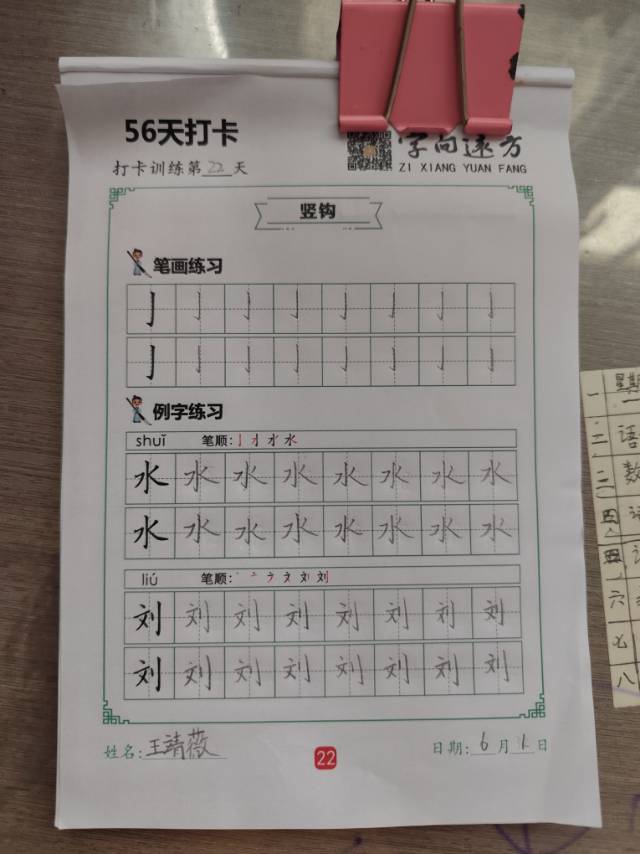 56天打卡
字向远方
打卡训练第22天
ZI XIANG YUAN FANG
竖钩
笔画练习
亅亅亅亅亅亅亅亅
亅亅亅亅亅亅亅亅
例字练习
shuǐ 笔顺:
水水水水水水水水
水水水水水水水水
liú 笔顺:
刘刘刘刘刘刘刘刘
刘刘刘刘刘刘刘刘
姓名:王靖薇
22
日期:6月1日
星期
一
二 语
三 数
四
五
六
七
八